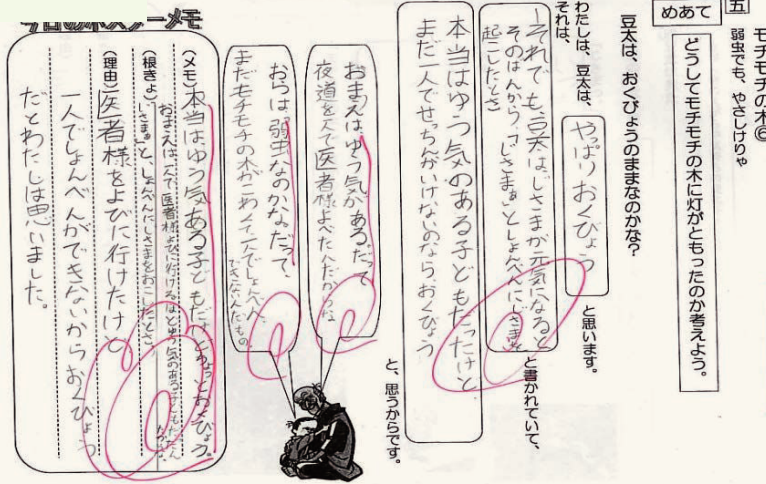 五
モチモチの木⑥
弱虫でも、やさしけりゃ
めあて
どうしてモチモチの木に灯がともったのか考えよう。
豆太は、おくびょうのままなのかな?
わたしは、豆太は、
やっぱりおくびょう
と思います。
それは、
それでも、豆太は、じさまが元気になると
そのばんから、「じさまぁ」としょんべんにじさまを
起こしたとさ
と書かれていて、
本当はゆう気のある子どもだったけど
まだ一人でせっちんがいけないのならおくびょう
と、思うからです。
おまえは、ゆう気がある。だって
夜道を一人で医者様よべたんだからな
おらは弱虫なのかな。だって、
まだモチモチの木がこわくて一人でしょんべんへ
できないんだもの
(メモ)本当はゆう気ある子どもだけどちょっとおくびょう。
おまえは一人で医者様よびに行けるほどゆう気のある子どもだったんだからな。
(根きょ)「じさまぁ」と、しょんべんにじさまをおこしたとさ
(理由)医者様をよびに行けたけど
一人でしょんべんができないからおくびょう
だとわたしは思いました。